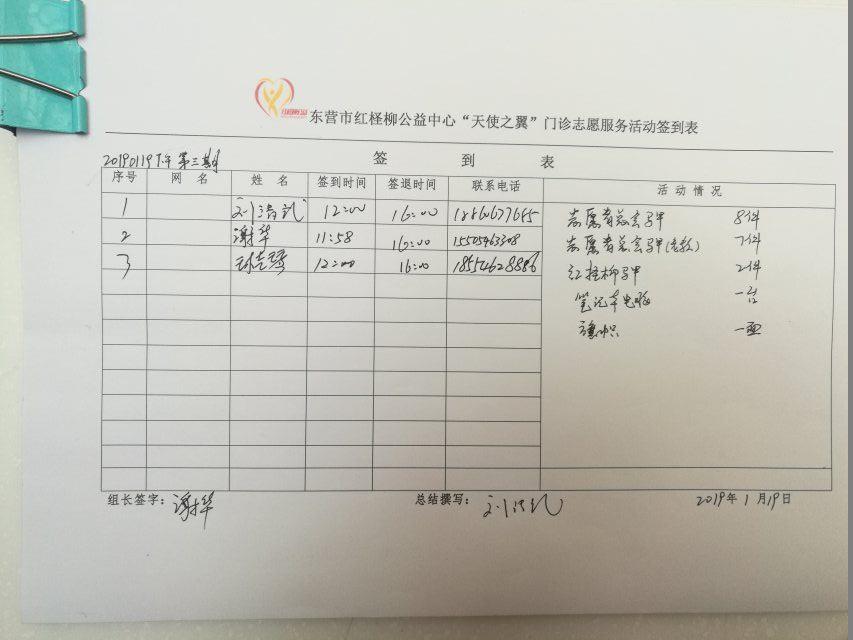 东营市红柽柳公益中心“天使之翼”门诊志愿服务活动签到表
签 到 表
20190119下午 第三期
序号 网 名 姓 名 签到时间 签退时间 联系电话 活 动 情 况
1 12:00 16:00
2 谢华 11:58 16:00 15505463308
3 12:00 16:00 18554628886
志愿者总会马甲 8件
志愿者总会马甲 7件
红柽柳马甲 2件
笔记本电脑 一台
旗帜 一面
组长签字: 谢华 总结撰写: 2019年1月19日